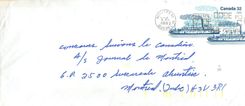 Canada 32
concours Suivons le canadien
A/S Journal de Montréal
C.P. 2500 Succursale Ahuntsic
Montréal (Québ) H3V 3R1